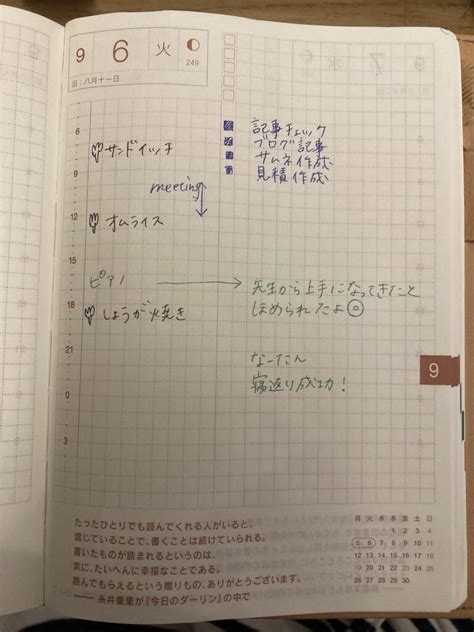 9 6 火
249
旧:八月十一日
6
サンドイッチ
9
meeting
12
オムライス
15
ピアノ
18
しょうが焼き
21
0
3
記事チェック
ブログ記事
サムネ作成
見積作成
先生から上手になってきたこと
ほめられたよ◎
なーたん
寝返り成功!
9
たったひとりでも読んでくれる人がいると、
信じていることで、書くことは続けていられる。
書いたものが読まれるというのは、
実に、たいへんに幸福なことである。
読んでもらえるという贈りもの、ありがとうございます。
── 糸井重里が『今日のダーリン』の中で
月 火 水 木 金 土 日
1 2 3 4
5 6 7 8 9 10 11
12 13 14 15 16 17 18
19 20 21 22 23 24 25
26 27 28 29 30